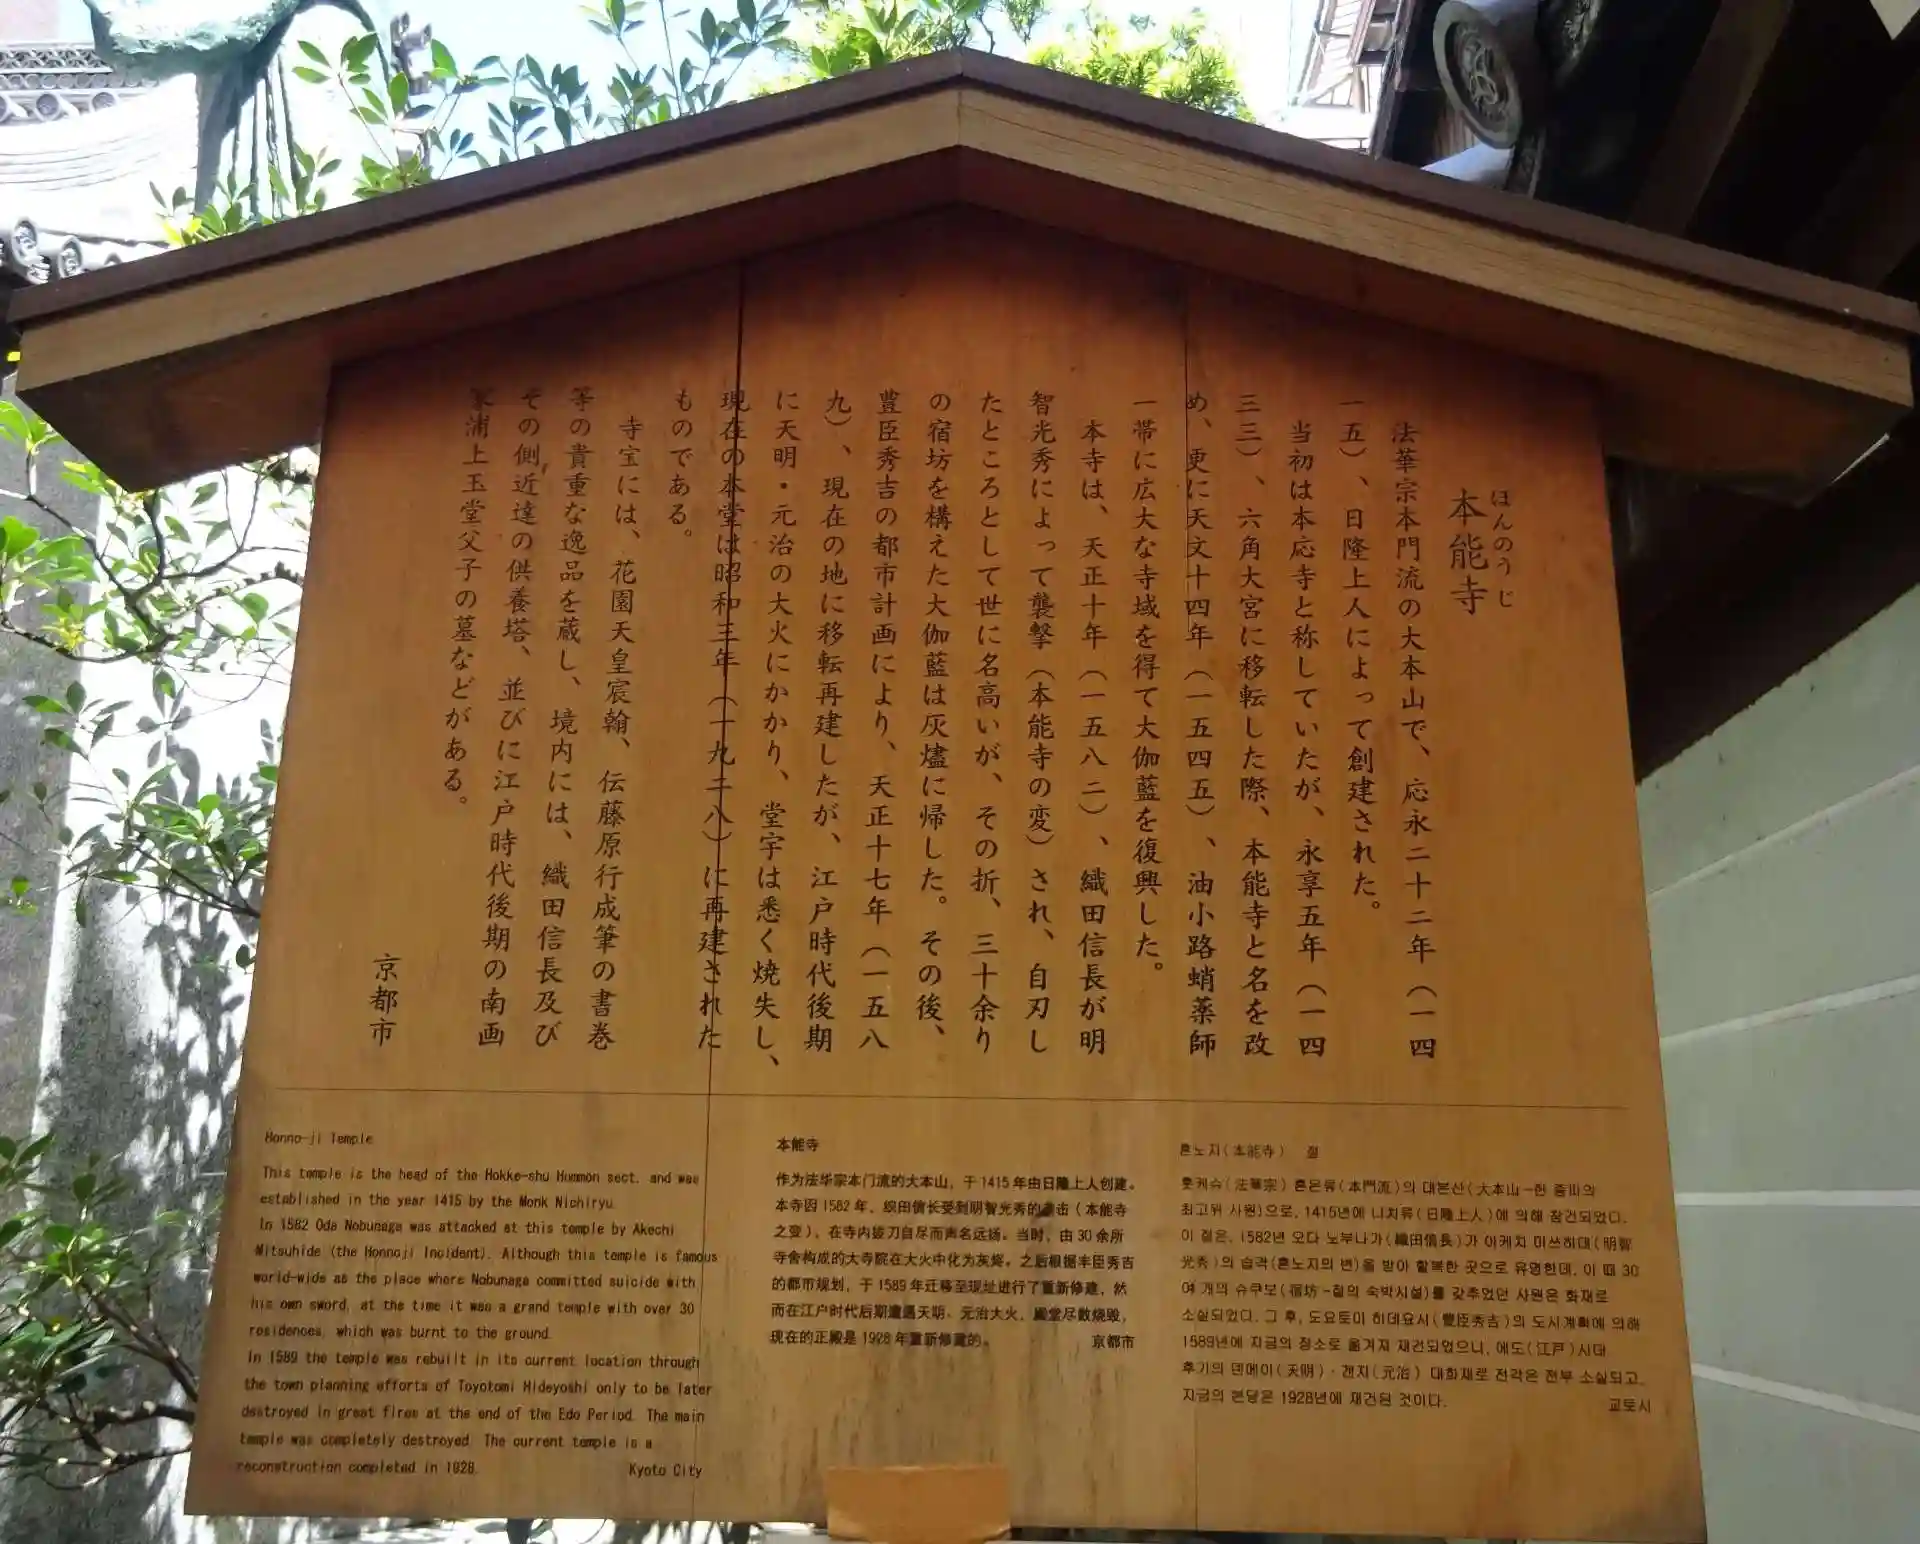 ほんのうじ
本能寺
法華宗本門流の大本山で、応永二十二年（一四
一五）、日隆上人によって創建された。
当初は本応寺と称していたが、永享五年（一四
三三）、六角大宮に移転した際、本能寺と名を改
め、更に天文十四年（一五四五）、油小路蛸薬師
一帯に広大な寺域を得て大伽藍を復興した。
本寺は、天正十年（一五八二）、織田信長が明
智光秀によって襲撃（本能寺の変）され、自刃し
たところとして世に名高いが、その折、三十余り
の宿坊を構えた大伽藍は灰燼に帰した。その後、
豊臣秀吉の都市計画により、天正十七年（一五八
九）、現在の地に移転再建したが、江戸時代後期
に天明・元治の大火にかかり、堂宇は悉く焼失し、
現在の本堂は昭和三年（一九二八）に再建された
ものである。
寺宝には、花園天皇宸翰、伝藤原行成筆の書巻
等の貴重な逸品を蔵し、境内には、織田信長及び
その側近達の供養塔、並びに江戸時代後期の南画
家浦上玉堂父子の墓などがある。
京都市
Honno-ji Temple
This temple is the head of the Hokke-shu Hommon sect. and was
established in the year 1415 by the Monk Nichiryu.
In 1582 Oda Nobunaga was attacked at this temple by Akechi
Mitsuhide (the Honnoji Incident). Although this temple is famous
world-wide as the place where Nobunaga committed suicide with
his own sword, at the time it was a grand temple with over 30
residences, which was burnt to the ground.
In 1589 the temple was rebuilt in its current location through
the town planning efforts of Toyotomi Hideyoshi only to be later
destroyed in great fires at the end of the Edo Period. The main
temple was completely destroyed. The current temple is a
reconstruction completed in 1928.
Kyoto City
本能寺
作为法华宗本门流的大本山，于1415年由日隆上人创建。
本寺因1582年，织田信长受到明智光秀的袭击（本能寺
之变），在寺内拔刀自尽而声名远扬。当时，由30余所
寺舍构成的大寺院在大火中化为灰烬。之后根据丰臣秀吉
的都市规划，于1589年迁移至现址进行了重新修建，然
而在江户时代后期遭遇天明、元治大火，殿堂尽数烧毁，
现在的正殿是1928年重新修建的。
京都市
혼노지(本能寺) 절
홋케슈(法華宗) 혼몬류(本門流)의 대본산(大本山-헌 종파의
최고위 사원)으로, 1415년에 니치류(日隆上人)에 의해 창건되었다.
이 절은, 1582년 오다 노부나가(織田信長)가 아케치 미쓰히데(明智
光秀)의 습격(혼노지의 변)을 받아 할복한 곳으로 유명한데, 이 때 30
여 개의 슈쿠보(宿坊-절의 숙박시설)를 갖추었던 사원은 화재로
소실되었다. 그 후, 도요토미 히데요시(豊臣秀吉)의 도시계획에 의해
1589년에 지금의 장소로 옮겨져 재건되었으나, 에도(江戸)시대
후기의 덴메이(天明)·겐지(元治) 대화재로 전각은 전부 소실되고,
지금의 본당은 1928년에 재건된 것이다.
교토시